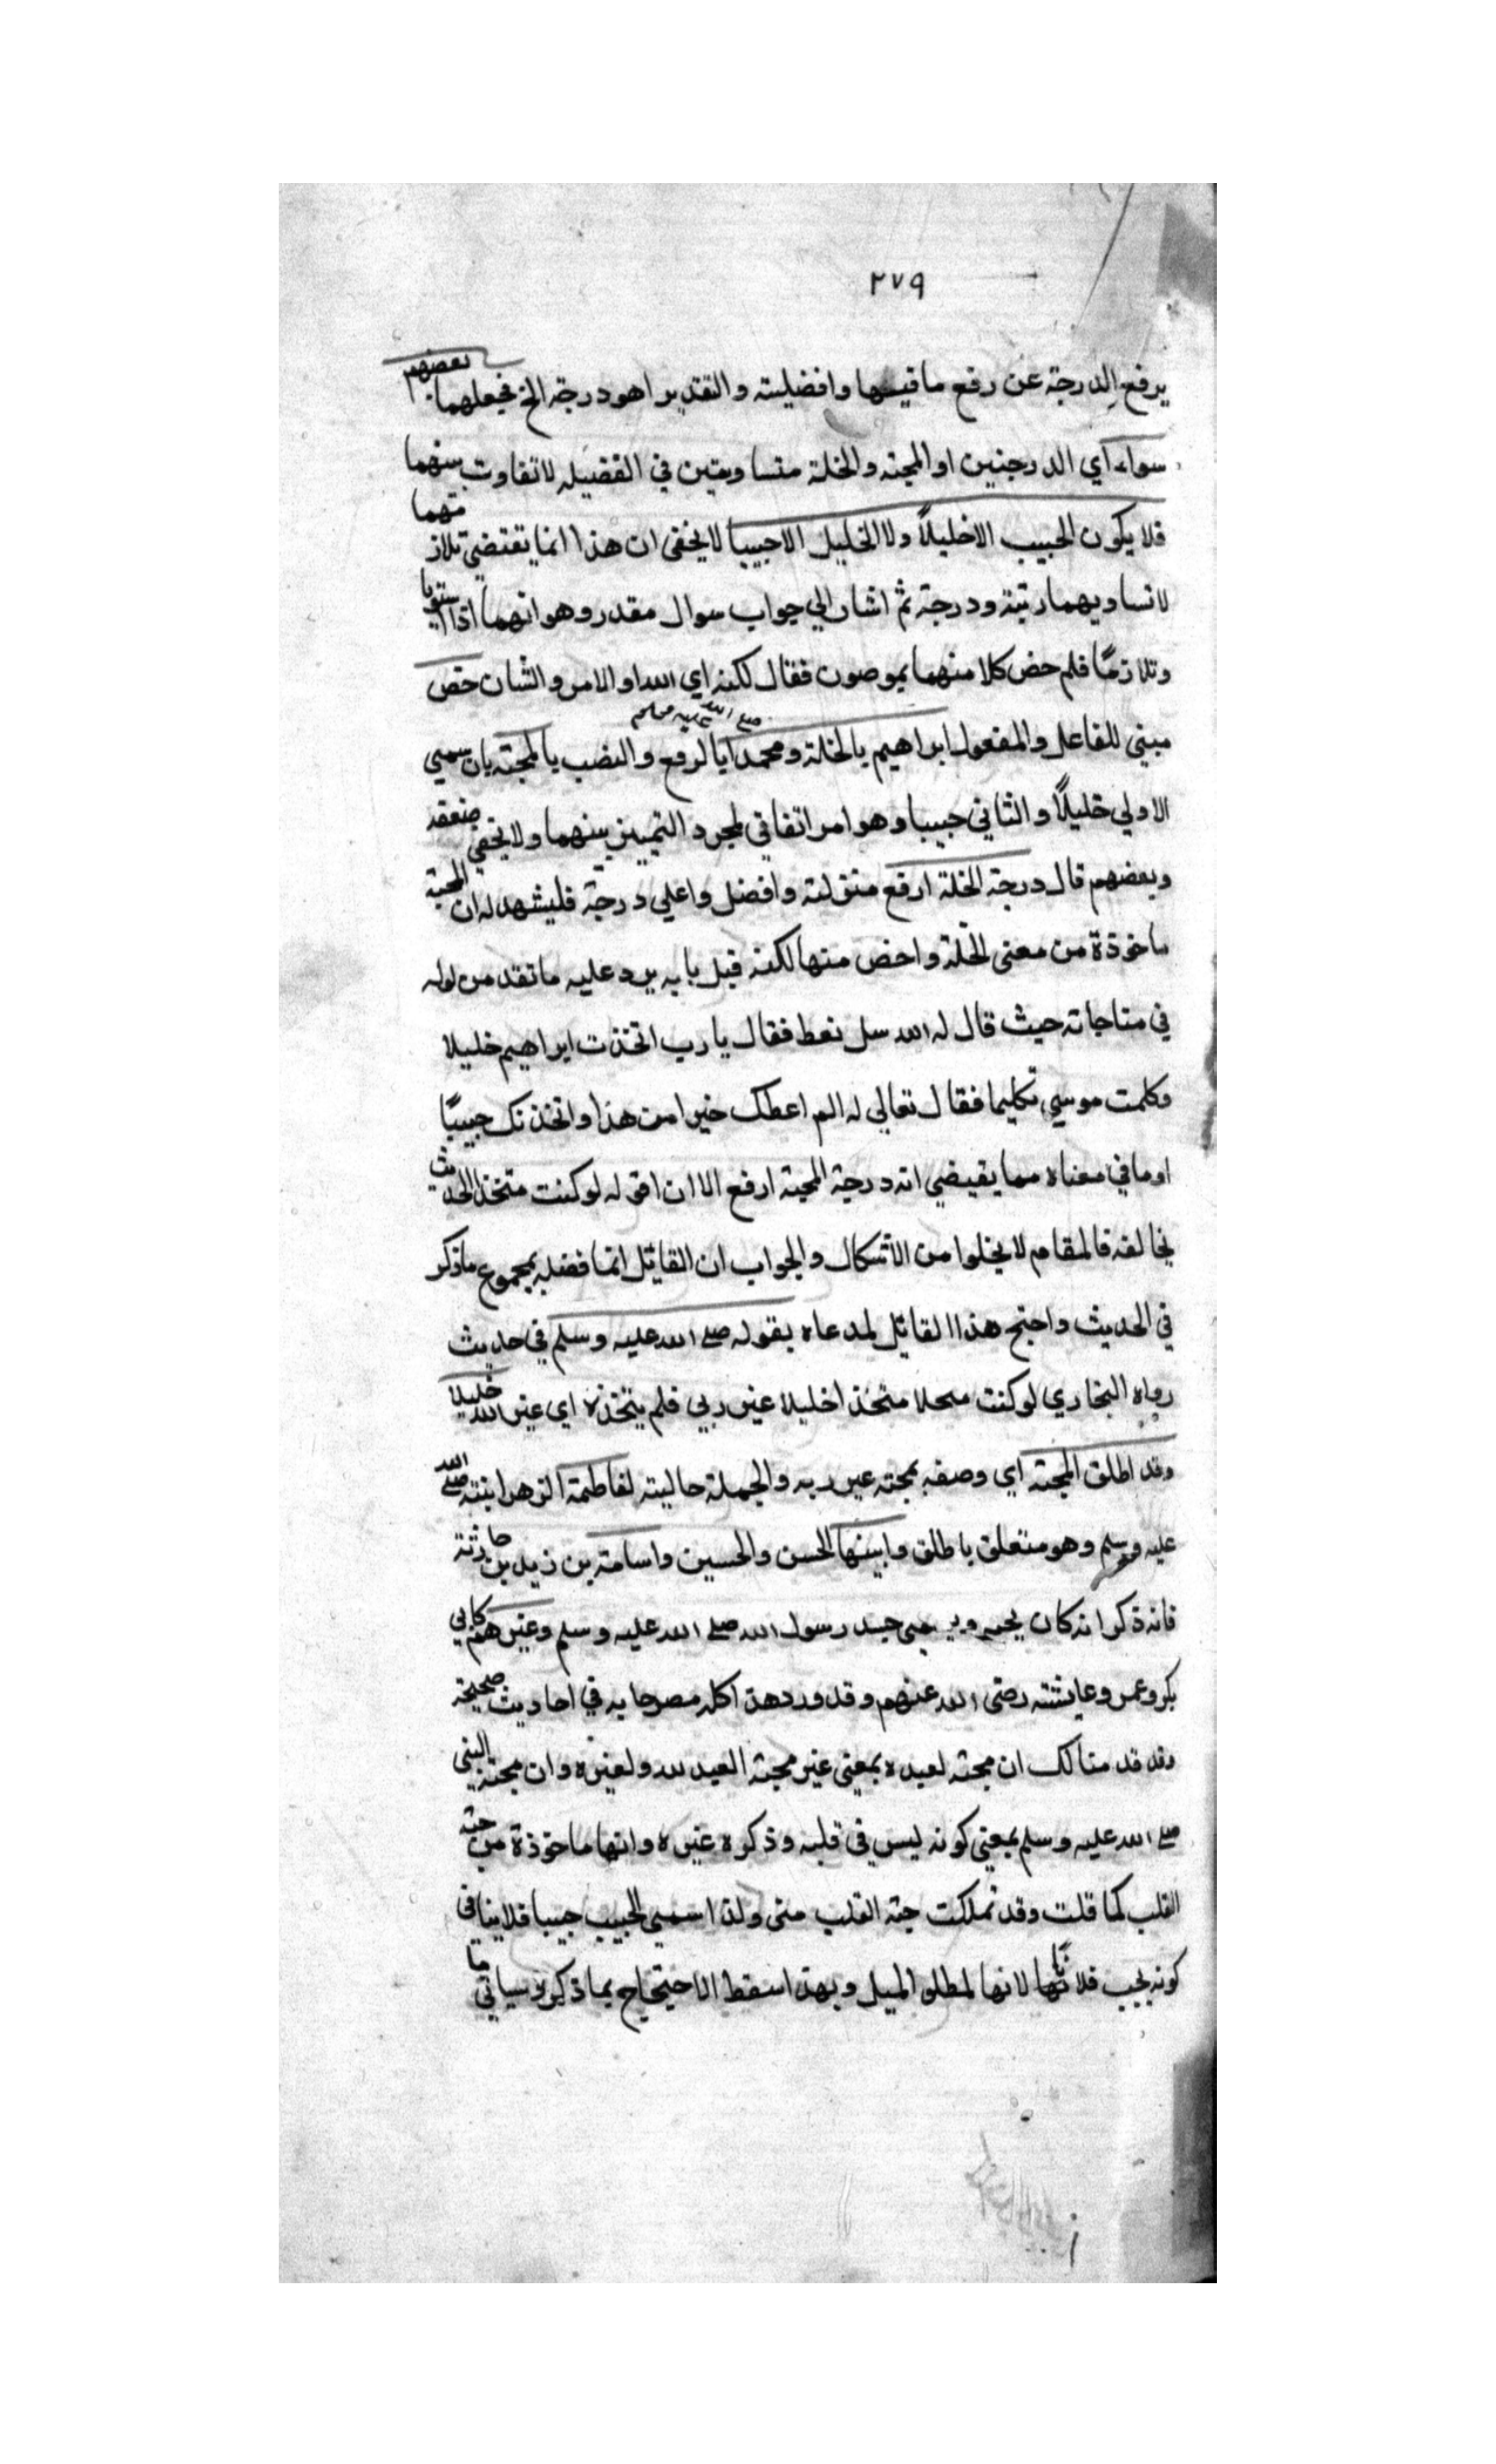 ٢٧٩
يرفع الدرجة عن رفع ما فيها وافضليته والتقدير اهو درجة الخ فجعلهما بعضهم
سواء اي الدرجتين او المحبة والخلة متساويتين في الفضيله لا تفاوت بينهما
فلا يكون الحبيب الا خليلاً ولا الخليل الا حبيبا لا يخفى ان هذا انما يقتضي تلازمهما
لا تساويهما رتبة ودرجة ثم اشار الي جواب سوال مقدر وهو انهما اذا استويا
وتلازمًا فلم خص كلا منهما بموصوف فقال لكنه اي الله او الامر والشان خص
مبني للفاعل والمفعول ابراهيم بالخلة ومحمدا صلى الله عليه وسلم بالرفع والنصب بالمحبة بان سمي
الاولي خليلاً والثاني حبيبا وهو امر اتفاقي لمجرد التمييز بينهما ولا يخفي ضعفه
وبعضهم قال درجة الخلة ارفع منزلته وافضل واعلي درجة فليشهد له ان المحبة
ماخوذة من معنى الخلة واخص منها لكنه قيل بانه يرد عليه ما تقدم من قوله
في مناجاته حيث قال له الله سل تعط فقال يا رب اتخذت ابراهيم خليلا
وكلمت موسي تكليما فقال تعالى له الم اعطك خيرا من هذا واتخذتك حبيبًا
او ما في معناه مما يقيضي انه درجة المحبة ارفع الا ان اقوله لو كنت متخذ الحديث
يخالفه فالمقام لا يخلوا من الاشكال والجواب ان القايل انما فضله بمجموع ما ذكر
في الحديث واحتج هذا القايل لمدعاه بقوله صلى الله عليه وسلم في حديث
رواه البخاري لو كنت متخذا خليلا غير ربي فلم يتخذه اي غير الله خليلا
وقد اطلق المحبة اي وصفه بمحبة غير ربه والجملة حاليته لفاطمة الزهرا ابنته صلى الله
عليه وسلم وهو متعلق باطلق وابنيها الحسن والحسين واسامة بن زيد بن حارثة
فانه ذكر انه كان يحبه حب رسول الله صلى الله عليه وسلم وغيرهم كابي
بكر وعمر وعايشته رضى الله عنهم وقد ورد هذا كله مصرحا به في احاديث صحيحة
وقد قدمنا لك ان محبته لعبده بمعني غير محبته العبد لله ولغيره وان محبته النبي
صلى الله عليه وسلم بمعني كونه ليس في قلبه وذكره غيره وانها ماخوذة من حبة
القلب كما قلت وقد تملكت حبة القلب منى ولذا سمي الحبيب حبيبا فلا ينافى
كونه يحب فلانًا لانها لمطلو الميل وبهذا سقط الاحتجاج بما ذكر وسياتي ما